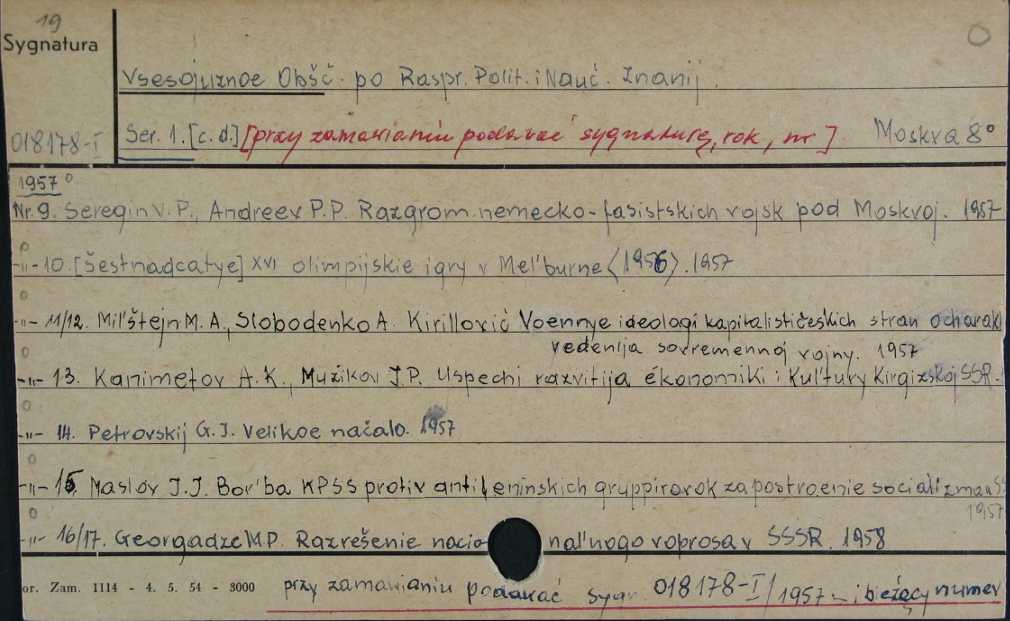 19
Sygnatura
Vsesojuznoe Obšč. po Raspr. Polit. i Nauč. Znanij.
018178-I Ser. 1. [c.d.] [przy zamawianiu podawać sygnaturę, rok, nr] Moskva 8°
1957
Nr. 9. Seregin V. P., Andreev P. P. Razgrom nemecko-fasistskich vojsk pod Moskvoj. 1957
-"- 10. [Šestnadcatye] XVI olimpijskie igry v Mel'burne <1956>. 1957
-"- 11/12. Mil'štejn M. A., Slobodenko A. Kirillovič Voennye ideologi kapitalističeskich stran ocharak
vedenija sovremennoj vojny. 1957
-"- 13. Kanimetov A. K., Mužikov J. P. Uspechi razvitija ékonomiki i Kul'tury Kirgizskoj SSR.
-"- 14. Petrovskij G. J. Velikoe načalo. 1957
-"- 15. Maslov J. J. Bor'ba KPSS protiv antileninskich gruppirovok za postroenie socializma v SS
1957
-"- 16/17. Georgadze M. P. Razrešenie nacional'nogo voprosa v SSSR. 1958
or. Zam. 1114 - 4. 5. 54 - 3000 przy zamawianiu podawać sygn. 018178-I/1957 - i bieżący numer